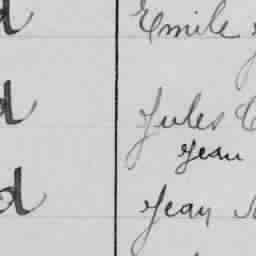 d Emile
d Jules
Jean
d Jean